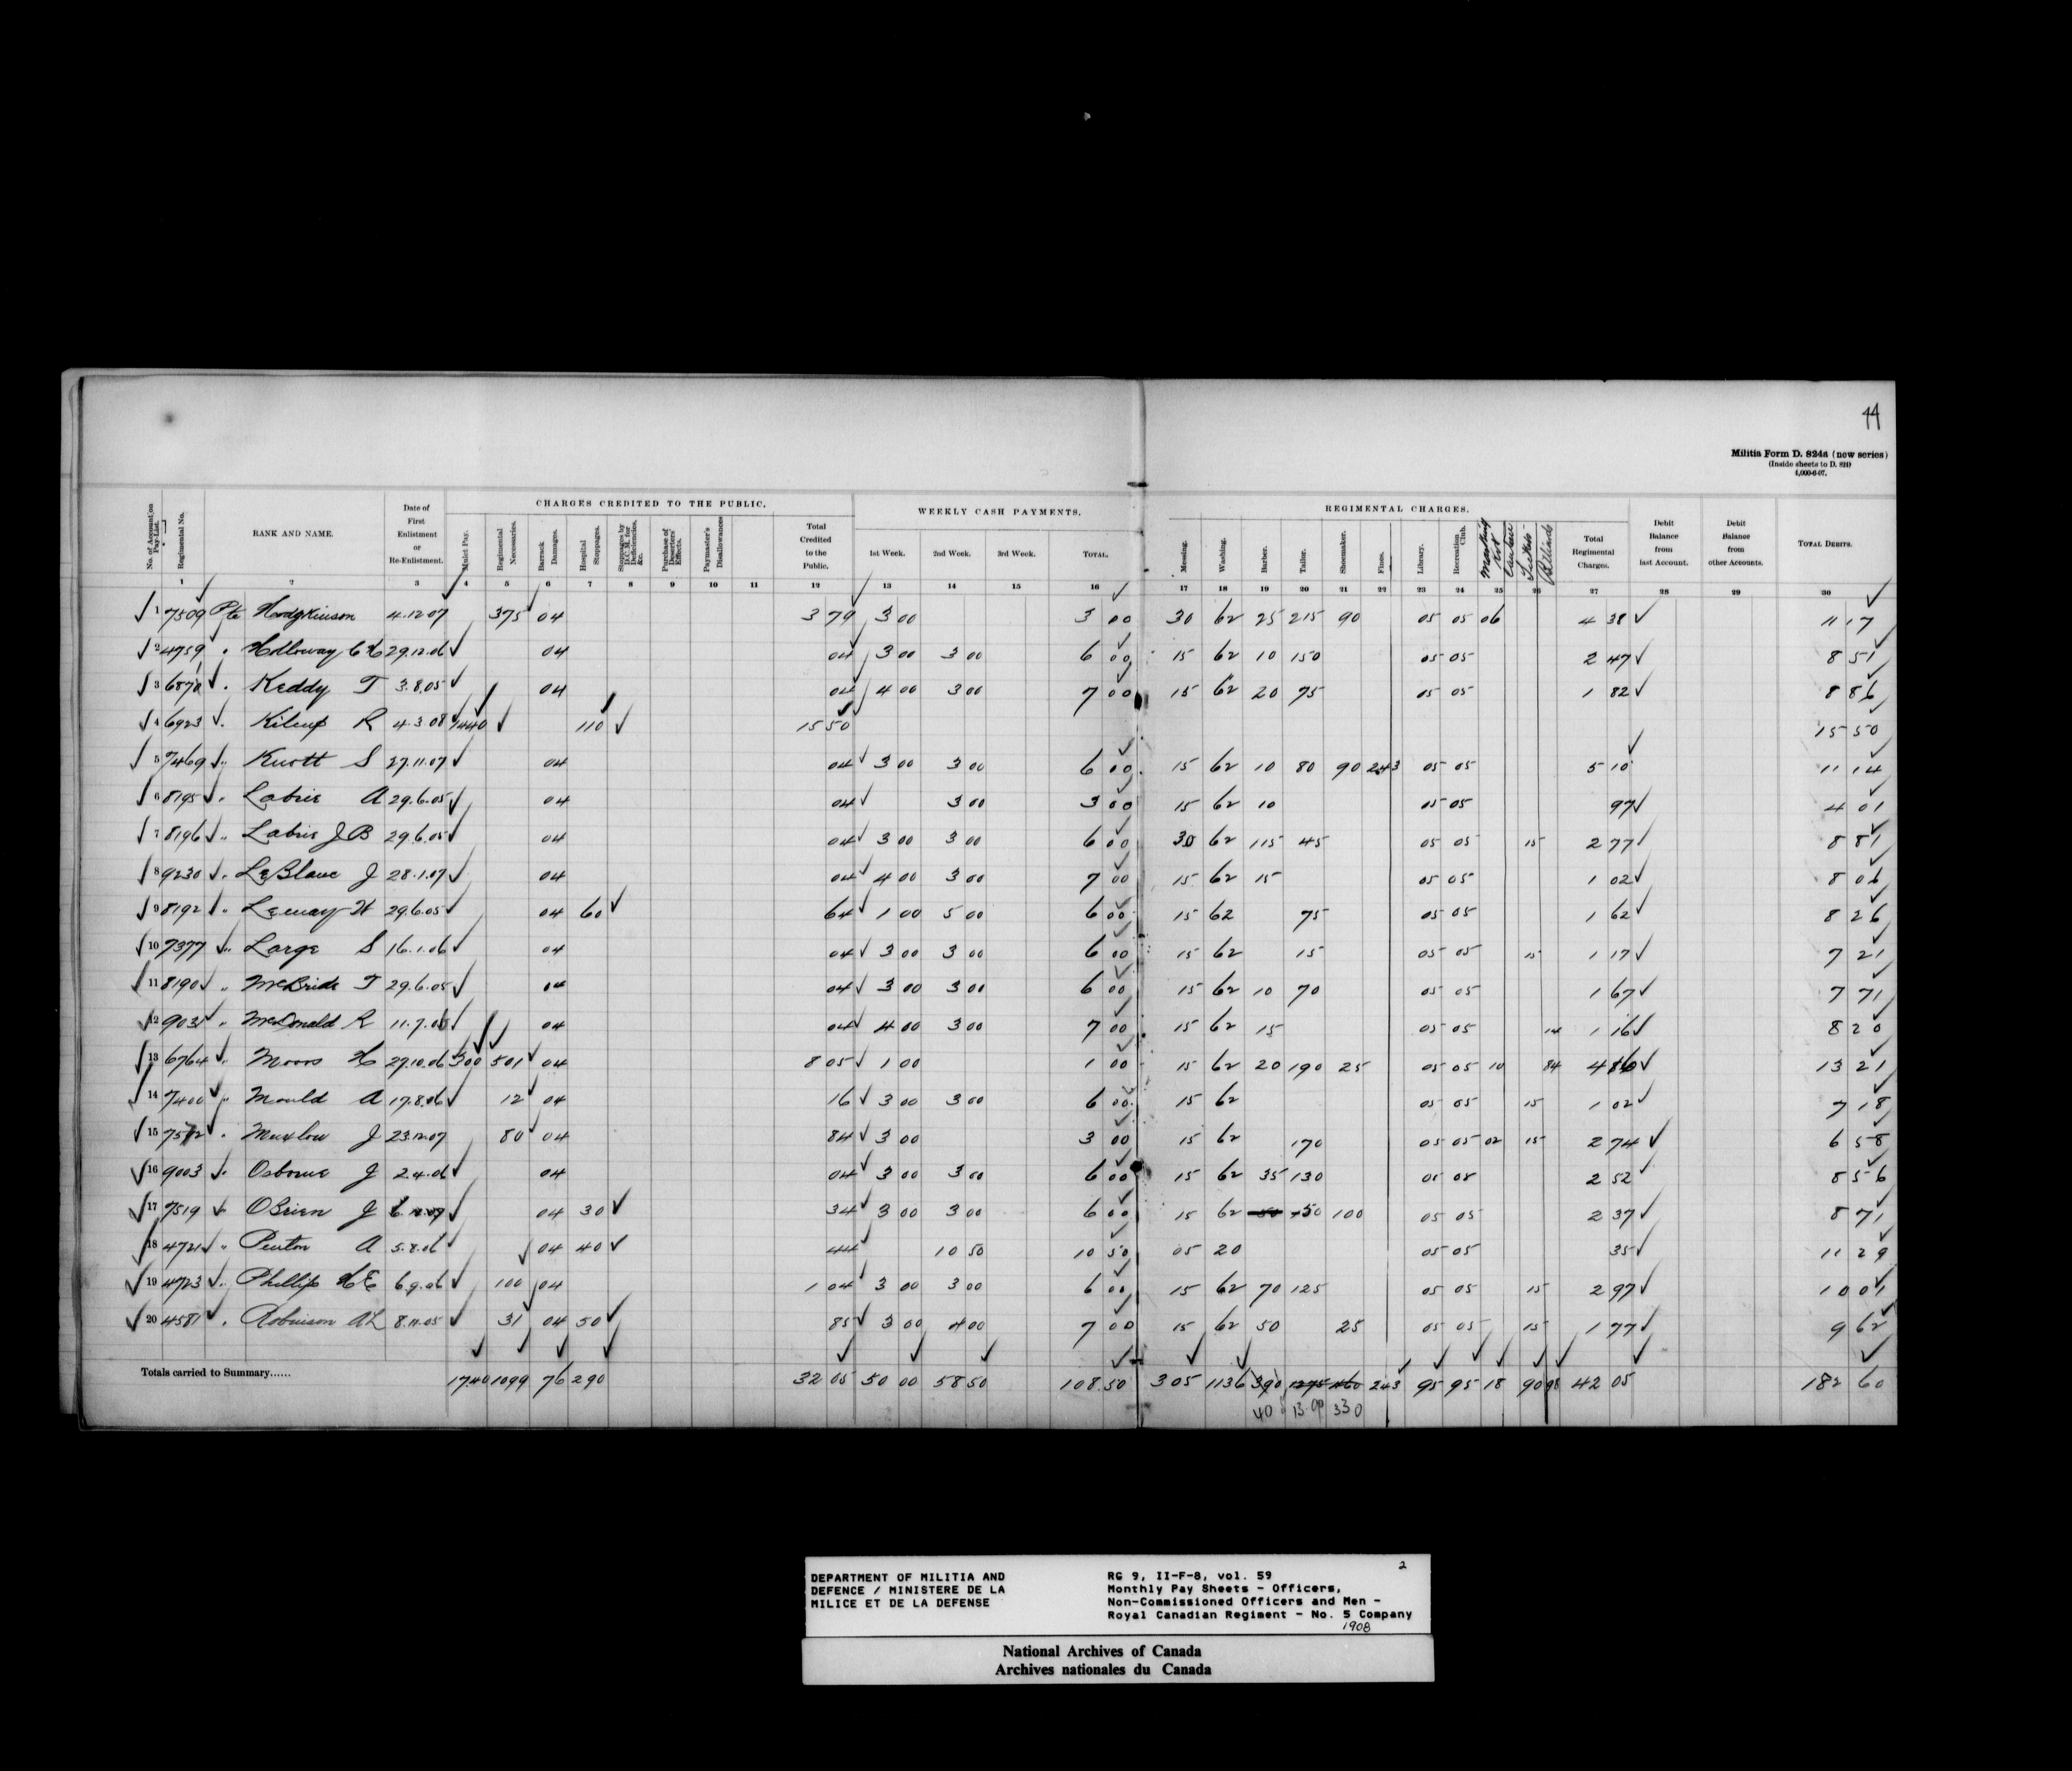 44
Militia Form D. 824a (new series)
(Inside sheets to D. 824)
1,000-6-07.
CHARGES CREDITED TO THE PUBLIC. WEEKLY CASH PAYMENTS. REGIMENTAL CHARGES.
No. of Account on Pay-List. Regimental No. RANK AND NAME. Date of First Enlistment or Re-Enlistment. Mulct Pay. Regimental Necessaries. Barrack Damages. Hospital Stoppages. Stoppages by D.C.M. for Deficiencies, &c. Purchase of Deserters' Effects. Paymaster's Disallowances Total Credited to the Public. 1st Week. 2nd Week. 3rd Week. TOTAL. Messing. Washing. Barber. Tailor. Shoemaker. Fines. Library. Recreation Club. Marking Kit Tickets Blinds Total Regimental Charges. Debit Balance from last Account. Debit Balance from other Accounts. TOTAL DEBITS.
1 2 3 4 5 6 7 8 9 10 11 12 13 14 15 16 17 18 19 20 21 22 23 24 25 26 27 28 29 30
1 7509 Pte Hodgkinson 4.12.07 375 04 3 79 3 00 3 00 30 62 25 215 90 05 05 06 4 38 11 17
2 4759 " Holloway C H 29.12.06 04 04 3 00 3 00 6 00 15 62 10 150 05 05 2 47 8 51
3 6870 " Keddy T 3.8.05 04 04 4 00 3 00 7 00 15 62 20 75 05 05 1 82 8 86
4 6923 " Kilcup R 4.3.08 1440 110 15 50 15 50
5 7469 " Knott S 27.11.07 04 04 3 00 3 00 6 00 15 62 10 80 90 243 05 05 5 10 11 14
6 8195 " Labrie A 29.6.05 04 04 3 00 3 00 15 62 10 05 05 97 4 01
7 8196 " Labrie J B 29.6.05 04 04 3 00 3 00 6 00 30 62 115 45 05 05 15 2 77 8 81
8 9230 " LeBlanc J 28.1.07 04 04 4 00 3 00 7 00 15 62 15 05 05 1 02 8 06
9 8192 " Lemay W 29.6.05 04 60 64 1 00 5 00 6 00 15 62 75 05 05 1 62 8 26
10 7377 " Large S 16.1.06 04 04 3 00 3 00 6 00 15 62 15 05 05 15 1 17 7 21
11 8190 " McBride T 29.6.05 04 04 3 00 3 00 6 00 15 62 10 70 05 05 1 67 7 71
12 9031 " McDonald R 11.7.06 04 04 4 00 3 00 7 00 15 62 15 05 05 14 1 16 8 20
13 6764 " Moors H 27.10.06 300 501 04 8 05 1 00 1 00 15 62 20 190 25 05 05 10 84 4 16 13 21
14 7400 " Mould A 17.8.06 12 04 16 3 00 3 00 6 00 15 62 05 05 15 1 02 7 18
15 7512 " Muxlow J 23.12.07 80 04 84 3 00 3 00 15 62 170 05 05 02 15 2 74 6 58
16 9003 " Osborne J 2.4.06 04 04 3 00 3 00 6 00 15 62 35 130 05 05 2 52 8 56
17 7519 " OBrien J 04 30 34 3 00 3 00 6 00 15 62 50 50 100 05 05 2 37 8 71
18 4721 " Penton A 5.8.06 04 40 44 10 50 10 50 05 20 05 05 35 11 29
19 4723 " Phillips H E 6.9.06 100 04 1 04 3 00 3 00 6 00 15 62 70 125 05 05 15 2 97 10 01
20 4581 " Robinson A L 8.11.05 31 04 50 85 3 00 4 00 7 00 15 62 50 25 05 05 15 1 77 9 62
Totals carried to Summary...... 1740 1099 76 290 32 05 50 00 58 50 108 50 305 1136 390 1275 460 243 95 95 18 90 98 42 05 182 60
40 13.00 330
DEPARTMENT OF MILITIA AND
DEFENCE / MINISTERE DE LA
MILICE ET DE LA DEFENSE
2
RG 9, II-F-8, vol. 59
Monthly Pay Sheets - Officers,
Non-Commissioned Officers and Men -
Royal Canadian Regiment - No. 5 Company
1908
National Archives of Canada
Archives nationales du Canada